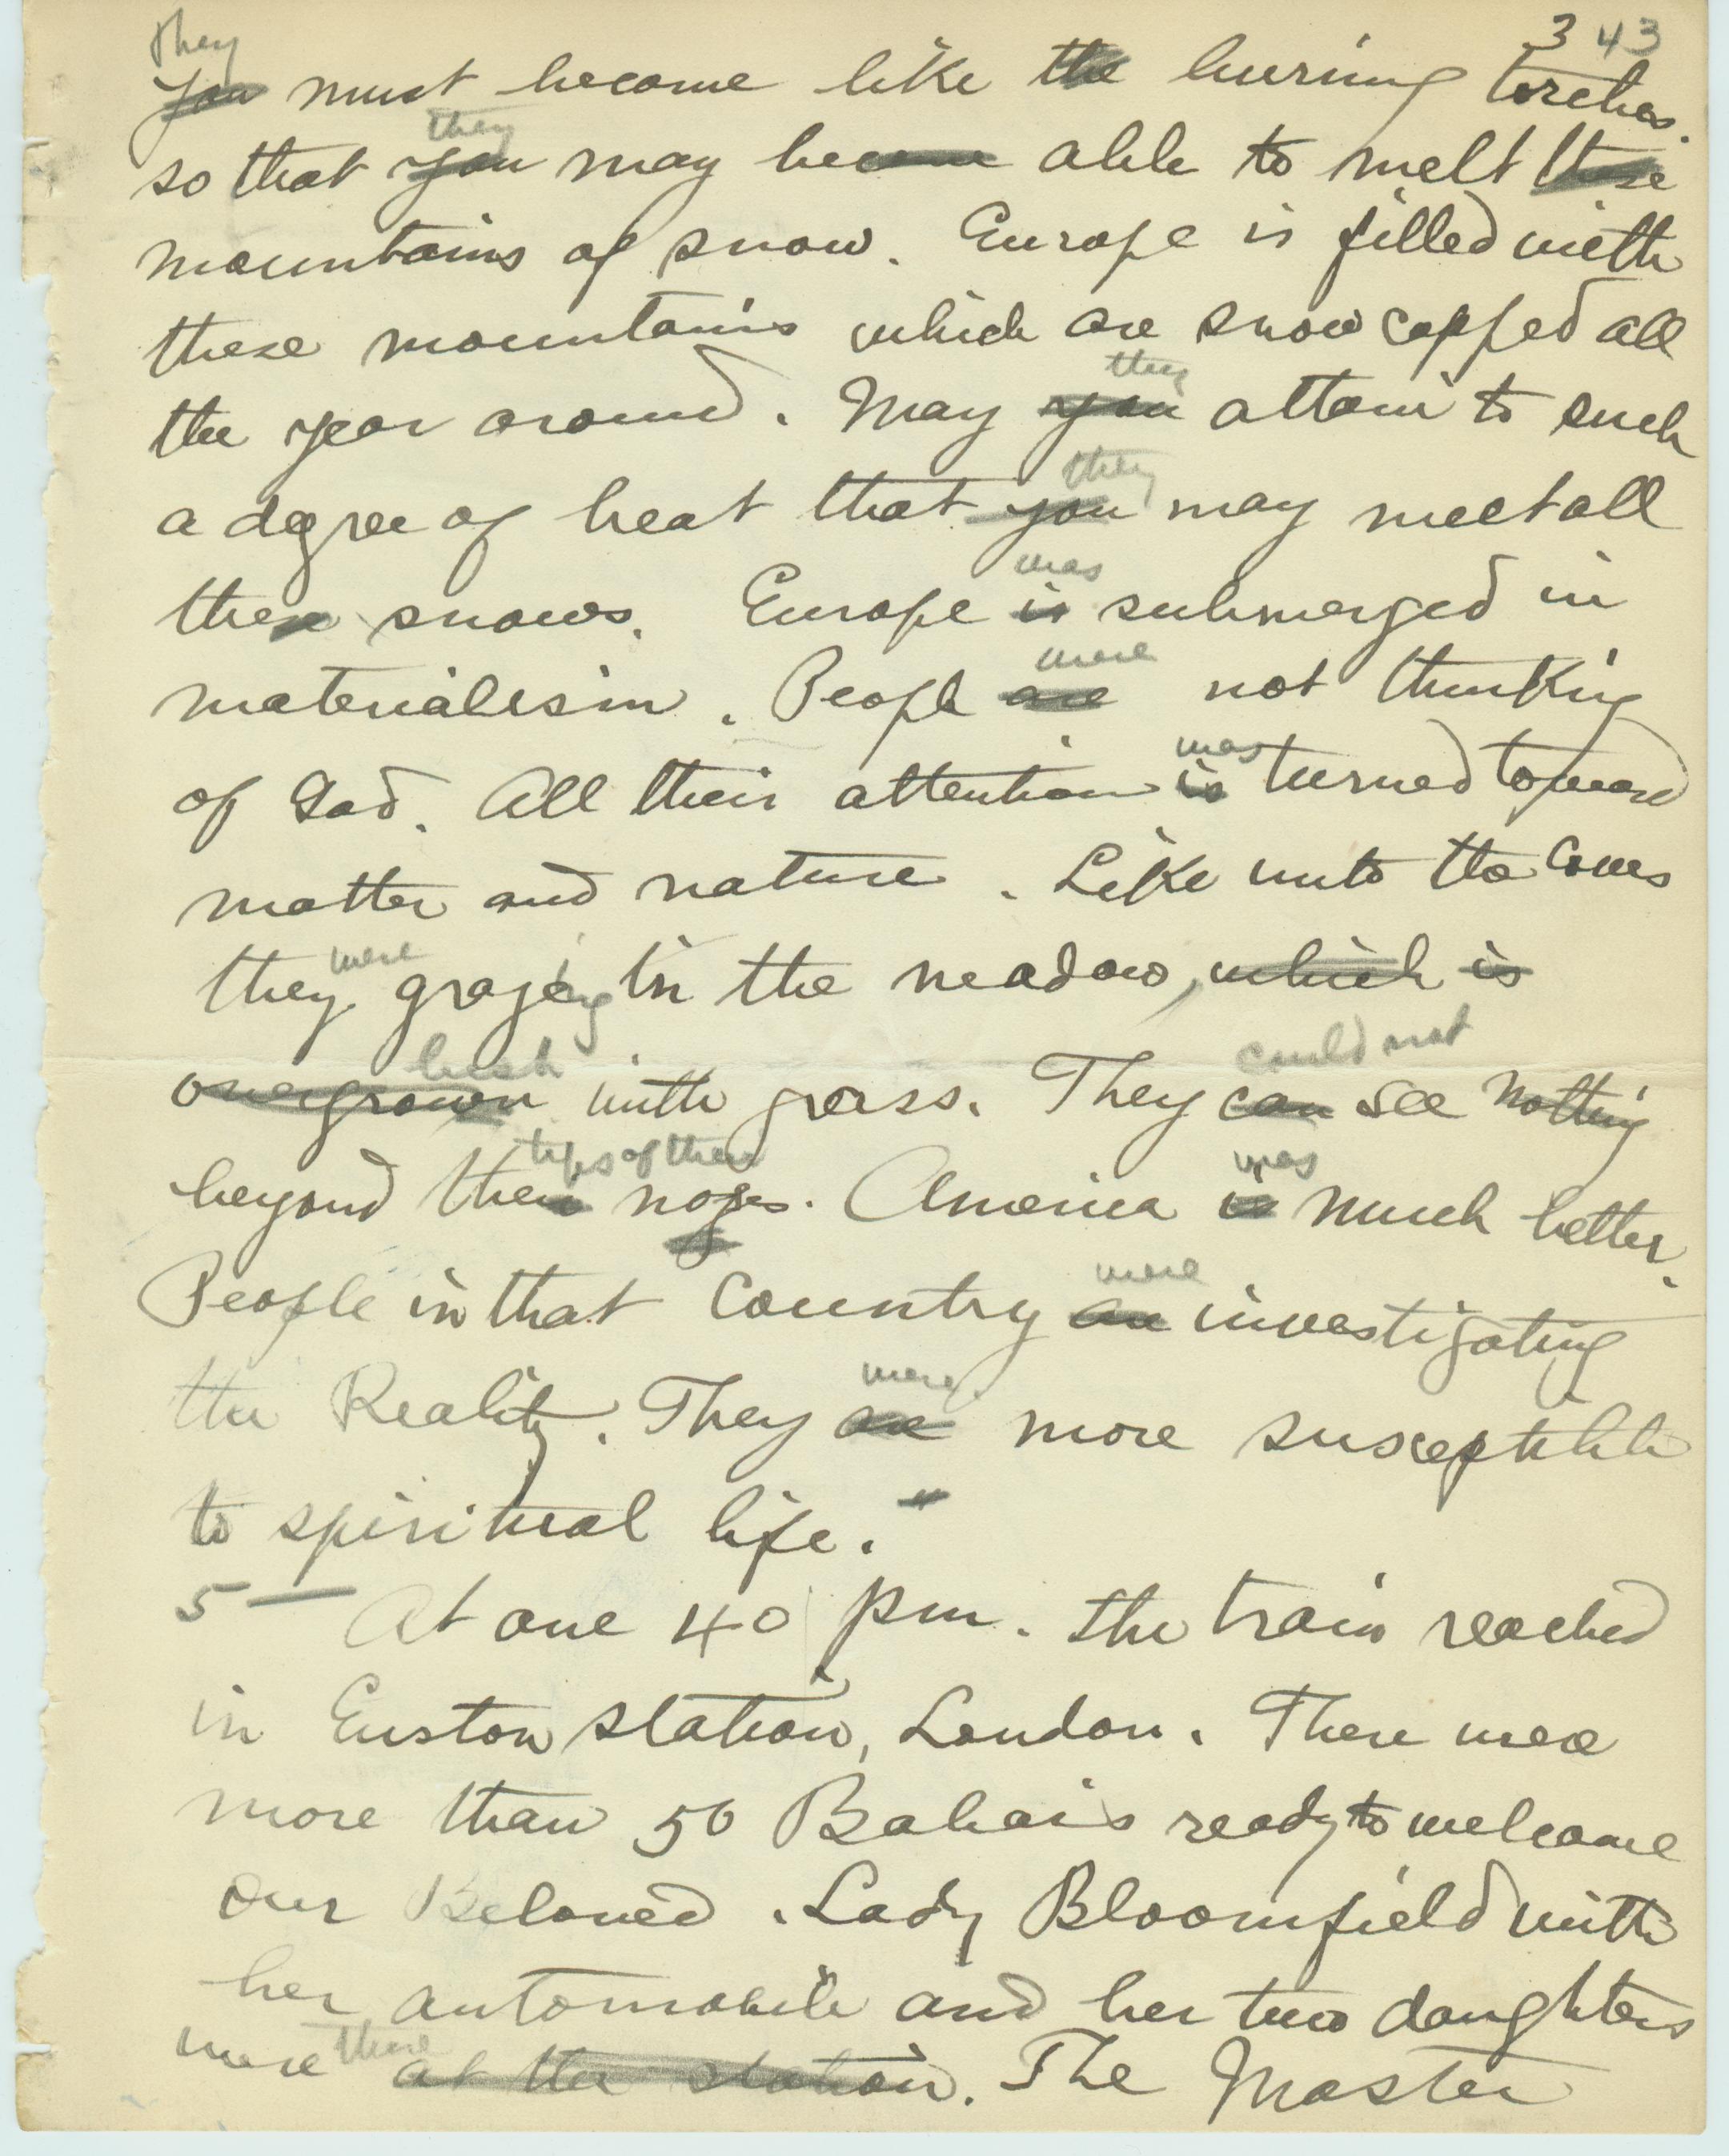 3 43
They
You must become like the burning torches.
they
so that you may become able to melt these
mountains of snow. Europe is filled with
these mountains which are snow capped all
they
the year around. May you attain to such
they
a degree of heat that you may melt all
was
these snows. Europe is submerged in
were
materialism. People are not thinking
was
of God. All their attention is turned toward
matter and nature. Like unto the cows
were
they grazing in the meadow, which is
lush could not
overgrown with grass. They can see nothing
tips of their was
beyond their noses. America is much better.
were
People in that country are investigating
were
the Reality. They are more susceptible
to spiritual life."
5— At one 40 pm. the train reached
in Euston station, London. There were
more than 50 Bahais ready to welcome
our Beloved. Lady Bloomfield with
her automobile and her two daughters
there
were at the station. The Master